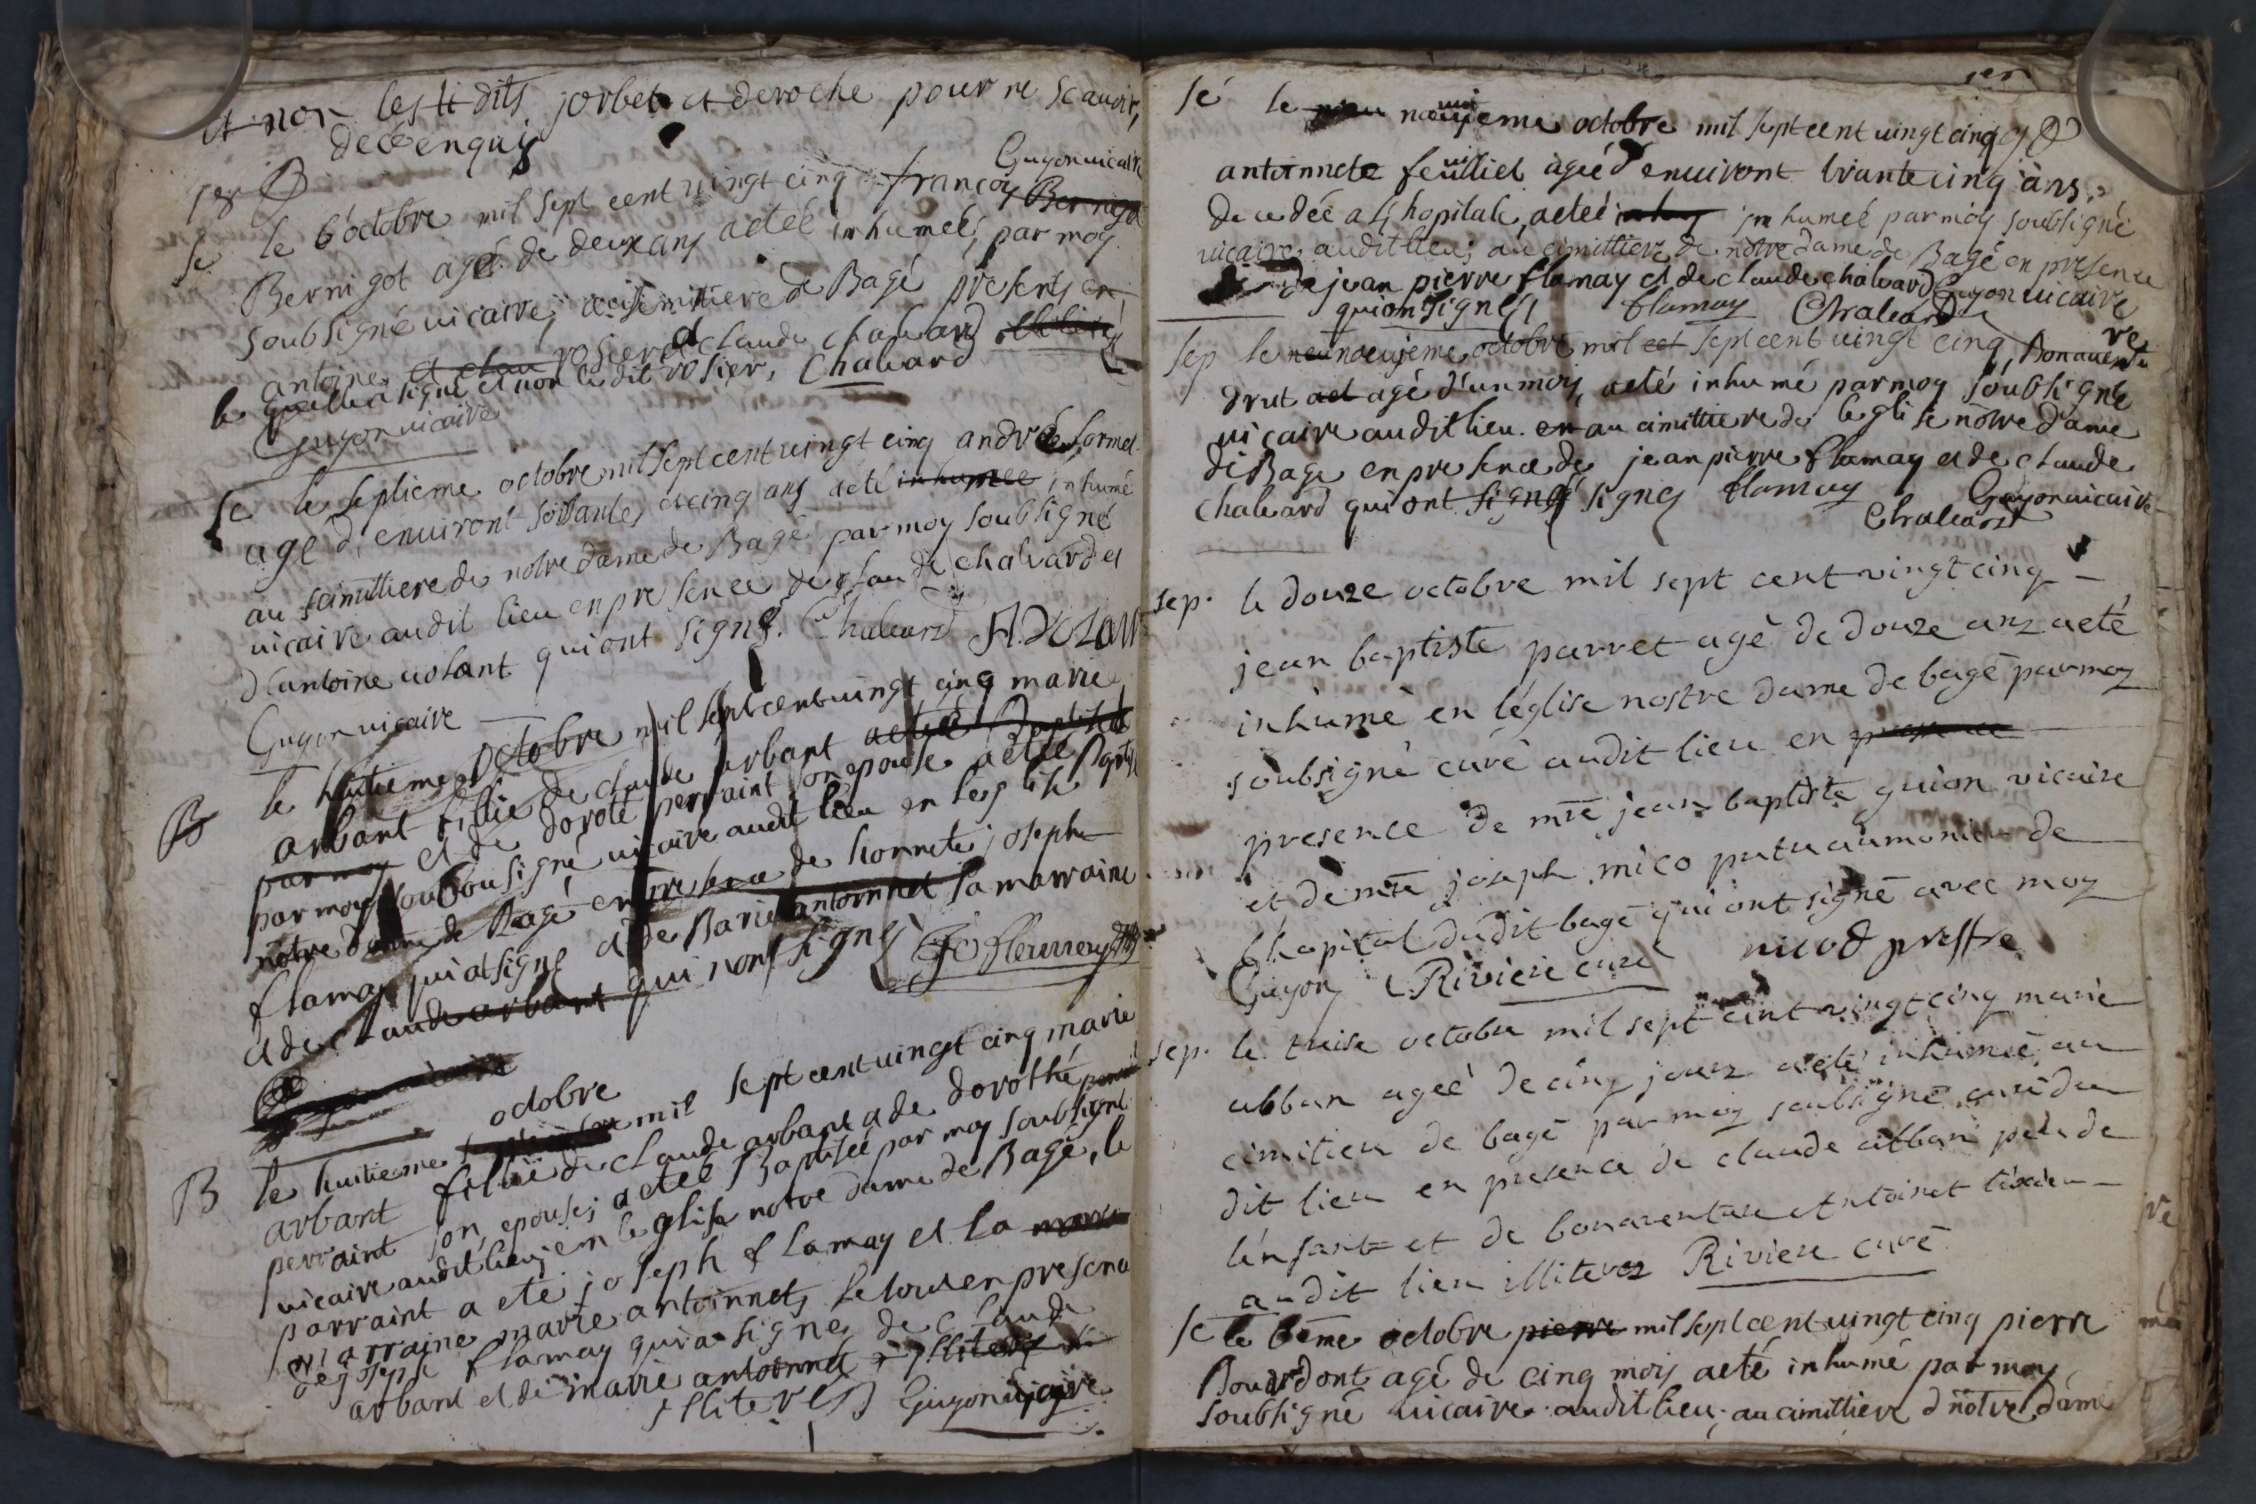 et non les ti dits jorbet et deroche pour ne scavoir,
de ce enquis
Guyon vicaire
se le 6 octobre mil sept cent vingt cinq françois Bernigo
Bernigot agé de deux ans aeteé inhumeé, par moy
soubsigné vicaire, au simitiere de Bagé presents en
antoine et clau rosier et claude chalvard
le quelle a signé et non le dit rosier, Chalvard
Guyon vicaire
se le septieme octobre mil sept cent vingt cinq andré formet
agé d'environt soixantes et cinq ans aeté inhumee inhumé
au scimittiere de notre dame de Bagé par moy soubsigné
vicaire audit lieu en presence de claude chalvard et
d'antoine volant qui ont signé. Chalvard A. VOLAN
Guyon vicaire
B le huitieme octobre mil sept cent vingt cinq marie
arbant fillie de claude arbant aeteé Baptiseé
par moy et de doroté perraint son epouse aeteé Baptis
par moy soubsousigné vicaire audit lieu en leglise
notre dame de Bagé en presence de honnete joseph
flamay qui at signé et de Marie antoinnet sa marraine
et de claude arbant qui n'ont signés
Guyon vicaire
octobre
B le huitieme mil sept cent vingt cinq marie
arbant fillie de claude arbant et de dorothé
perraint son epouse; aeteé Baptiseé par moy soubsigné
vicaire audit lieu, en leglise notre dame de Bagé, le
parraint a eté joseph flamay et la
marraine marie antoinnet, le tout en presence
de joseph flamay qui a signés de claude
arbant et de marie antoinnet illiteres
illiteres Guyon vicaire
sé le neuvieme octobre mil sept cent vingt cinq
antoinnete feuilliet ageé d'environt trante cinq ans,
decedeé a l'hopitale, aeteé inhumeé par moy soubsigné
vicaire audit lieu, au cimittiere de notre dame de Bagé en presence
de jean pierre flamay et de claude chalvard Guyon vicaire
qui ont signés flamay Chalvard
sep le neu noeuvieme octobre mil cet sept cent vingt cinq, Bonaventure
drut aet agé d'un moy, aeté inhumé par moy soubsigné
vicaire audit lieu. en au cimittiere de leglise notre dame
de Bage en presence de jean pierre flamay et de claude
chalvard qui ont signés signes flamay Guyon vicaire
Chalvard
sep. le douze octobre mil sept cent vingt cinq
jean baptiste parret agé de douze anz aeté
inhumé en l'église nostre dame de bagé par moy
soubsigné curé audit lieu en presence
presence de mre jean baptiste guion vicaire
et de mre joseph mico aumonier de
l'hopital dudit bagé qui ont signé avec moy
Guyon Riviere curé nicod prestre
sep. le treise octobre mil sept cent vingt cinq marie
abban ageé de cinq jourz aeté inhumeé au
cimitieu de bagé par moy soubsigné curé du
dit lieu en presence de claude abban pere de
l'enfant et de bonaventure Antoinet
audit lieu illiterez Riviere curé
se le octobre pierre mil sept cent vingt cinq pierre
Bourdont agé de cinq mois aeté inhumé par moy
soubsigné vicaire audit lieu; au cimittiere d notre dame